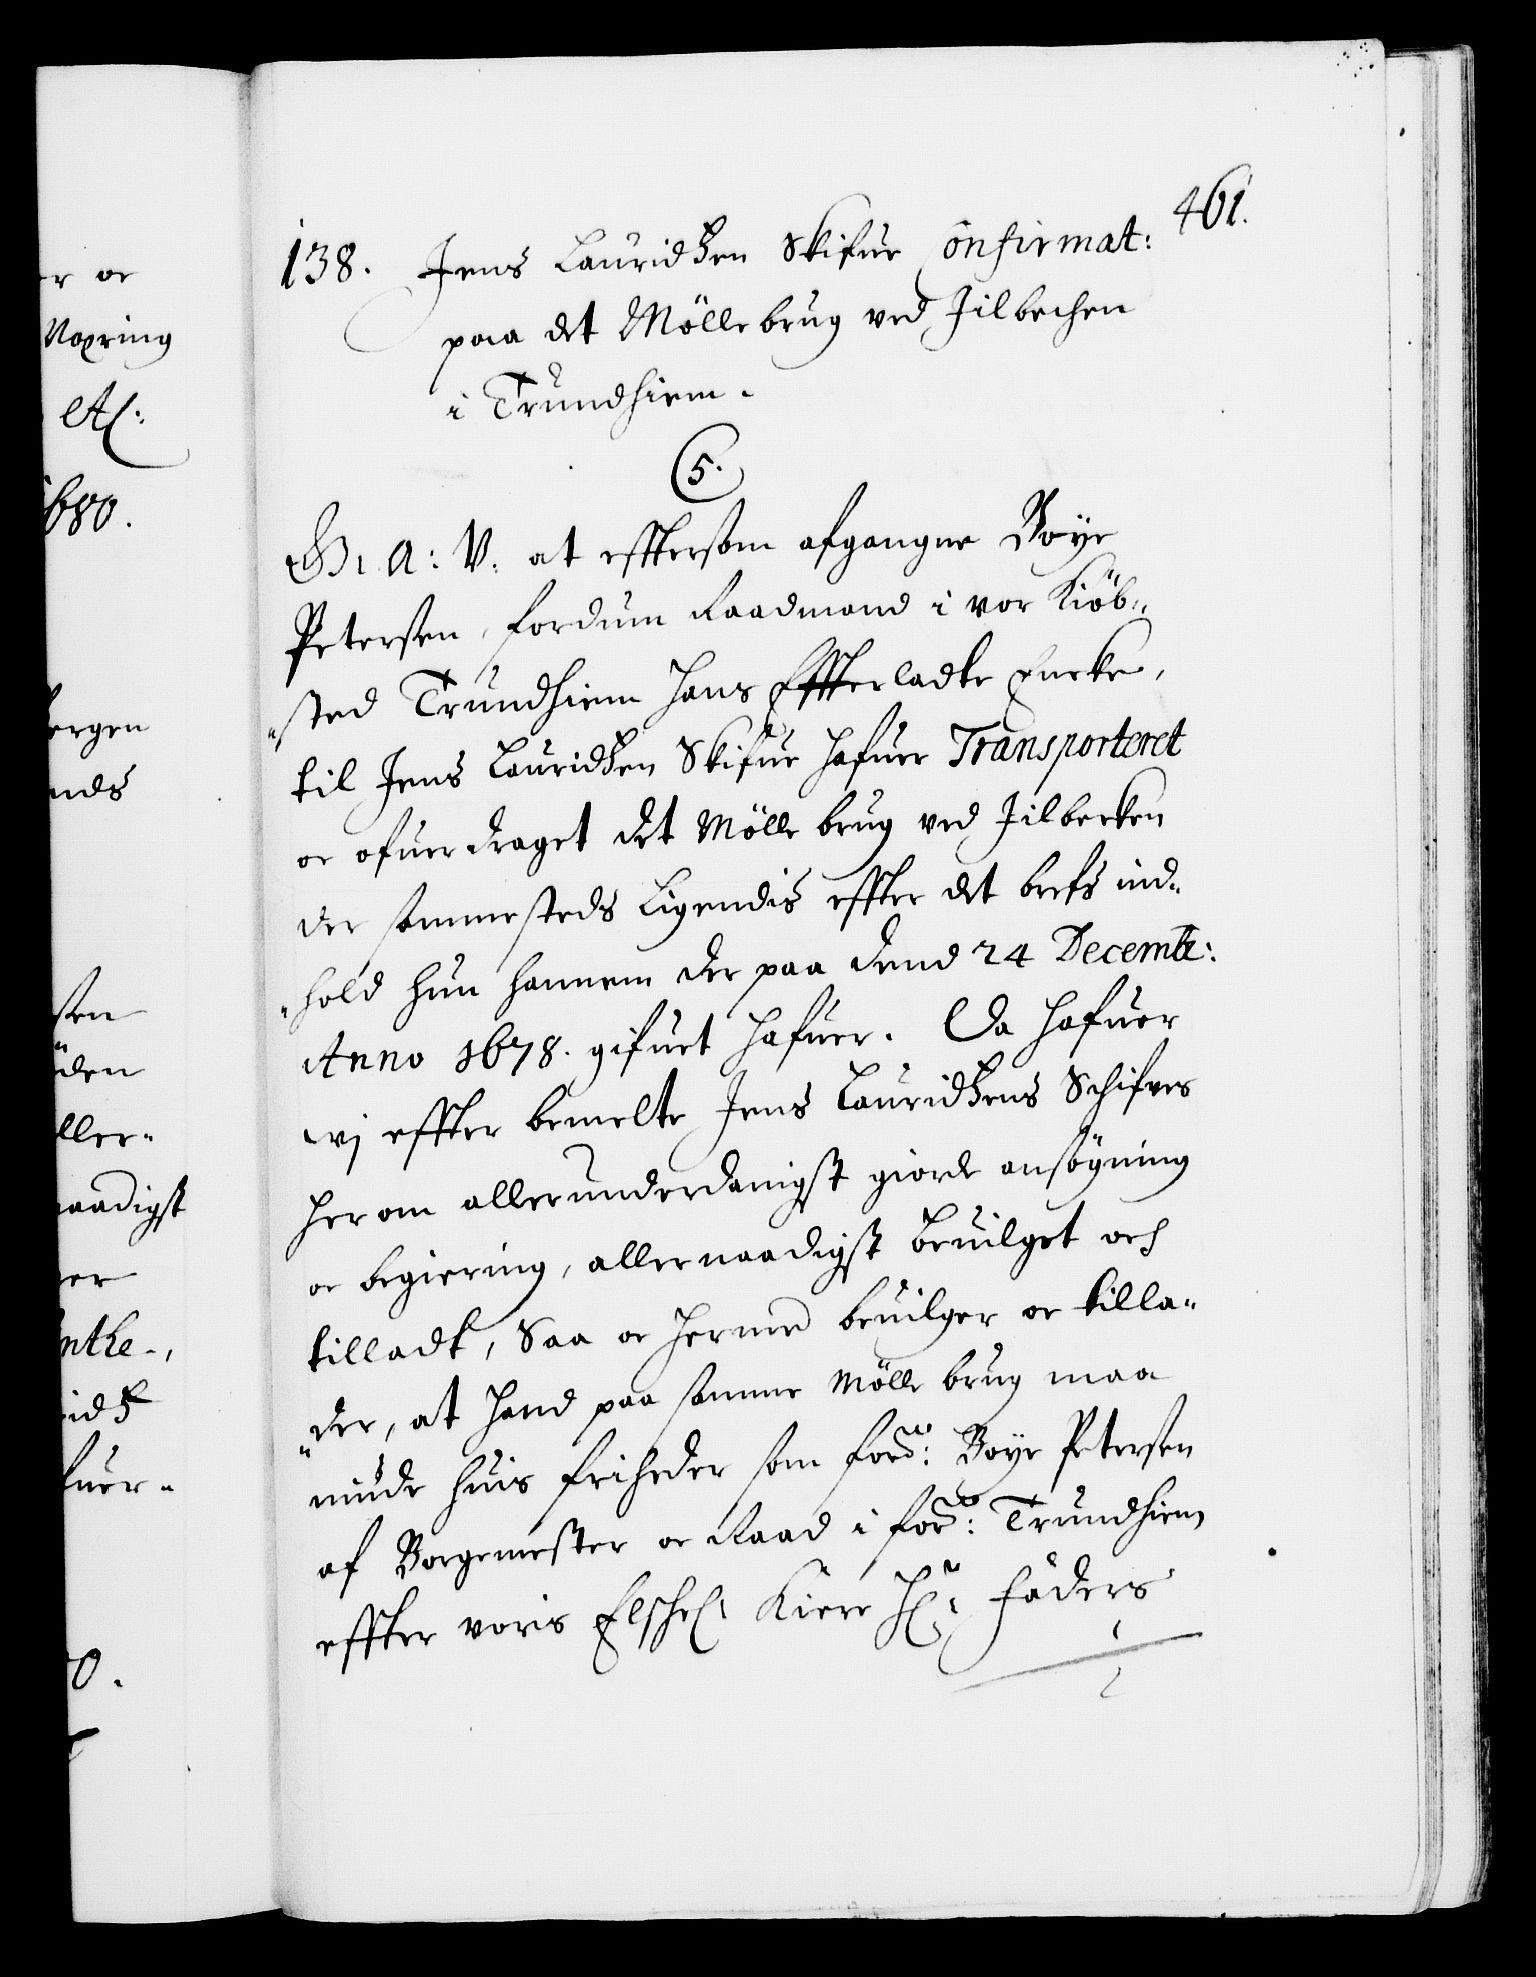 461.
138. Jens Lauridzen Skifue Confirmat:
paa det Möllebrug ved Jilbechen
i Trundhiem.
5.
G. A: V. at effterson afgangne Boye
Petersen, fordum Raadmand i vor Kiöb-
sted Trundhiem hans Effterladte Encke,
til Jens Lauridzen Skifue hafuer Transporteret
oc ofuerdraget det Mölle brug ved Jilbecken
der sammesteds Ligendis effter det brefs ind-
hold hun hannem der paa dend 24 Decembr:
Anno 1678. gifuet hafuer. Da hafuer
wj effter bemelte Jens Lauridzens Schifves
herom allerunderdanigst giorde ansögning
oc begiering, allernaadigst beuilget och
tilladt, Saa oc hermed beuilger oc tilla-
der, at hand paa samme Mölle brug maa
niude huis friheder som ford: Boye Petersen
af Borgemester oc Raad i ford: Trundhiem
effter voris Elschel: Kiere Hr: Faders
er oc
etc:
1680.
ergen
nds
sen
öden
ller-
naadigst
fuer-
0.